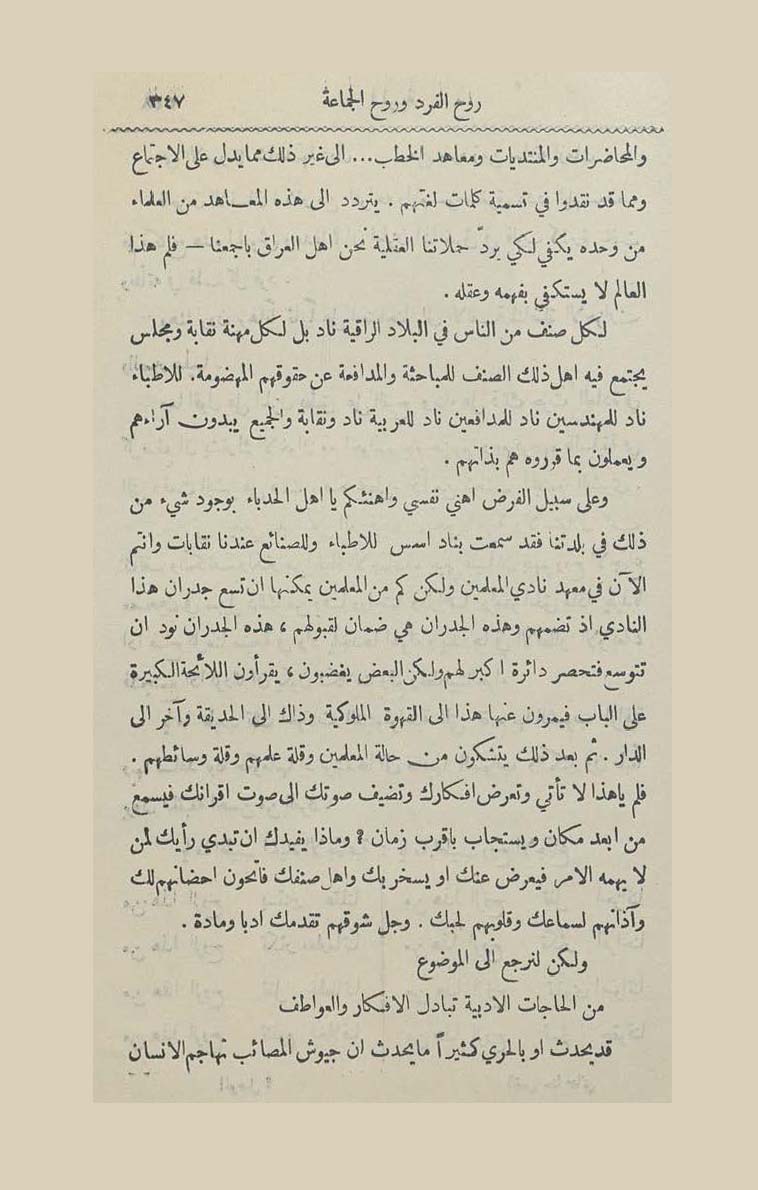 روح الفرد وروح الجماعة ٣٤٧
والمحاضرات والمنتديات ومعاهد الخطب... الى غير ذلك مما يدل على الاجتماع
ومما قد نقدوا في تسمية كلمات لغتهم . يتردد الى هذه المعاهد من العلماء
من وحده يكفي لكي يردّ حملاتنا العقلية نحن اهل العراق باجمعنا — فلم هذا
العالم لا يستكفي بفهمه وعقله .
لكل صنف من الناس في البلاد الراقية ناد بل لكل مهنة نقابة ومجلس
يجتمع فيه اهل ذلك الصنف للمباحثة والمدافعة عن حقوقهم المهضومة. للاطباء
ناد للمهندسين ناد للمدافعين ناد للعربية ناد ونقابة والجميع يبدون آراءهم
ويعملون بما قرروه هم بذاتهم .
وعلى سبيل الفرض اهني نفسي واهنئكم يا اهل الحدباء بوجود شيء من
ذلك في بلدتنا فقد سمعت بناد اسس للاطباء وللصنائع عندنا نقابات وانتم
الآن في معهد نادي المعلمين ولكن كم من المعلمين يمكنها ان تسع جدران هذا
النادي اذ تضمهم وهذه الجدران هي ضمان لقبولهم ، هذه الجدران نود ان
تتوسع فتحصر دائرة اكبر لهم ولكن البعض يغضبون ، يقرأون اللائحة الكبيرة
على الباب فيمرون عنها هذا الى القهوة الملوكية وذاك الى الحديقة وآخر الى
الدار . ثم بعد ذلك يتشكون من حالة المعلمين وقلة علمهم وقلة وسائطهم .
فلم ياهذا لا تأتي وتعرض افكارك وتضيف صوتك الى صوت اقرانك فيسمع
من ابعد مكان ويستجاب باقرب زمان ? وماذا يفيدك ان تبدي رأيك لمن
لا يهمه الامر فيعرض عنك او يسخر بك واهل صنفك فاتحون احضانهم لك
وآذانهم لسماعك وقلوبهم لحبك . وجل شوقهم تقدمك ادبا ومادة .
ولكن لنرجع الى الموضوع
من الحاجات الادبية تبادل الافكار والعواطف
قد يحدث او بالحري كثيراً ما يحدث ان جيوش المصائب تهاجم الانسان